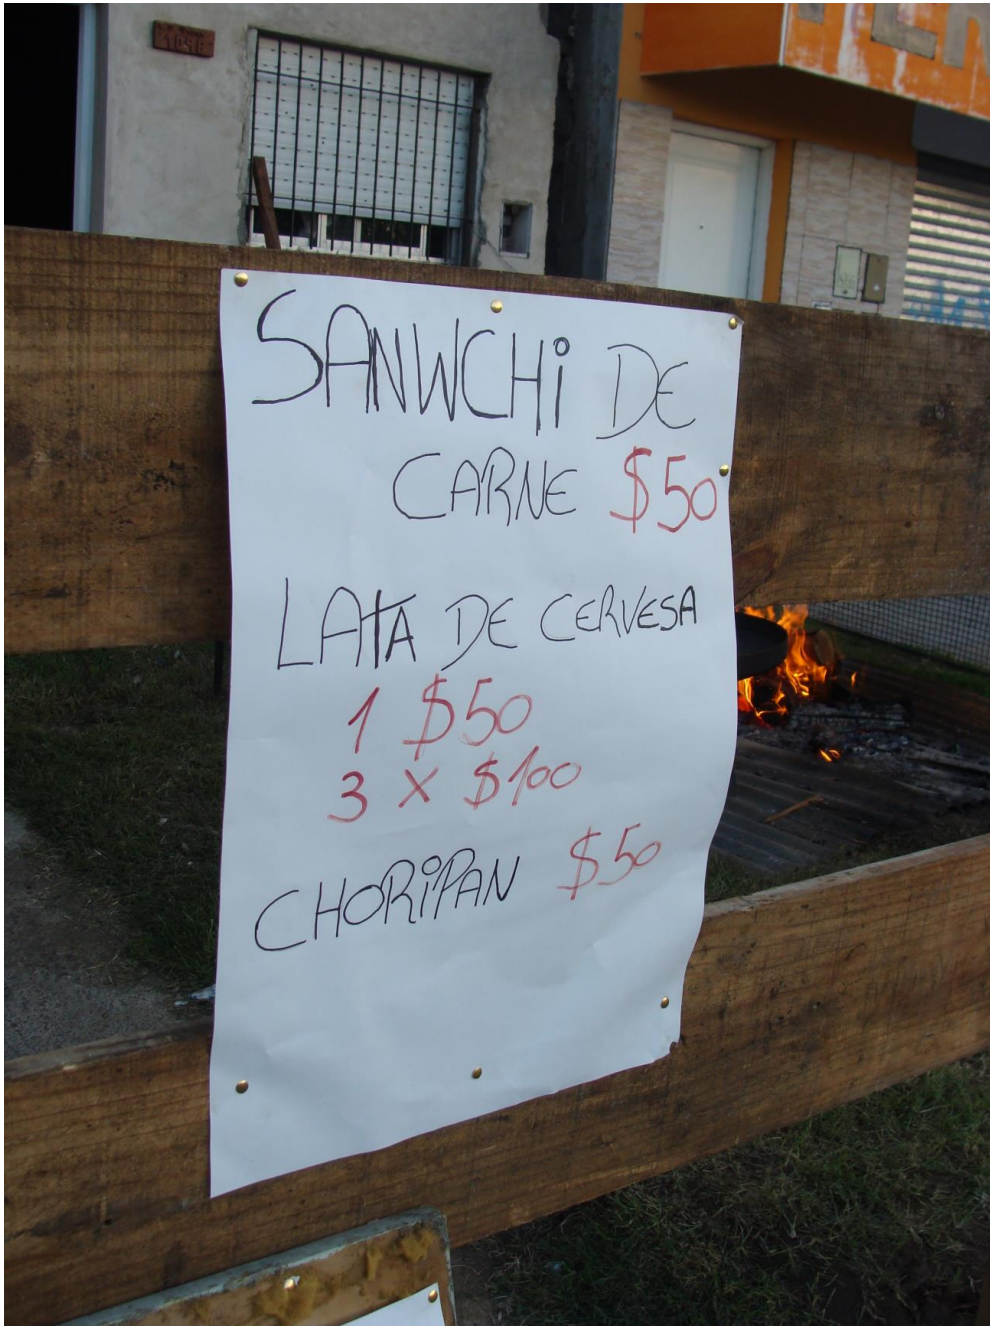 1046
SANWCHi DE
CARNE $50
LATA DE CERVESA
1 $50
3 X $100
CHORiPAN $50